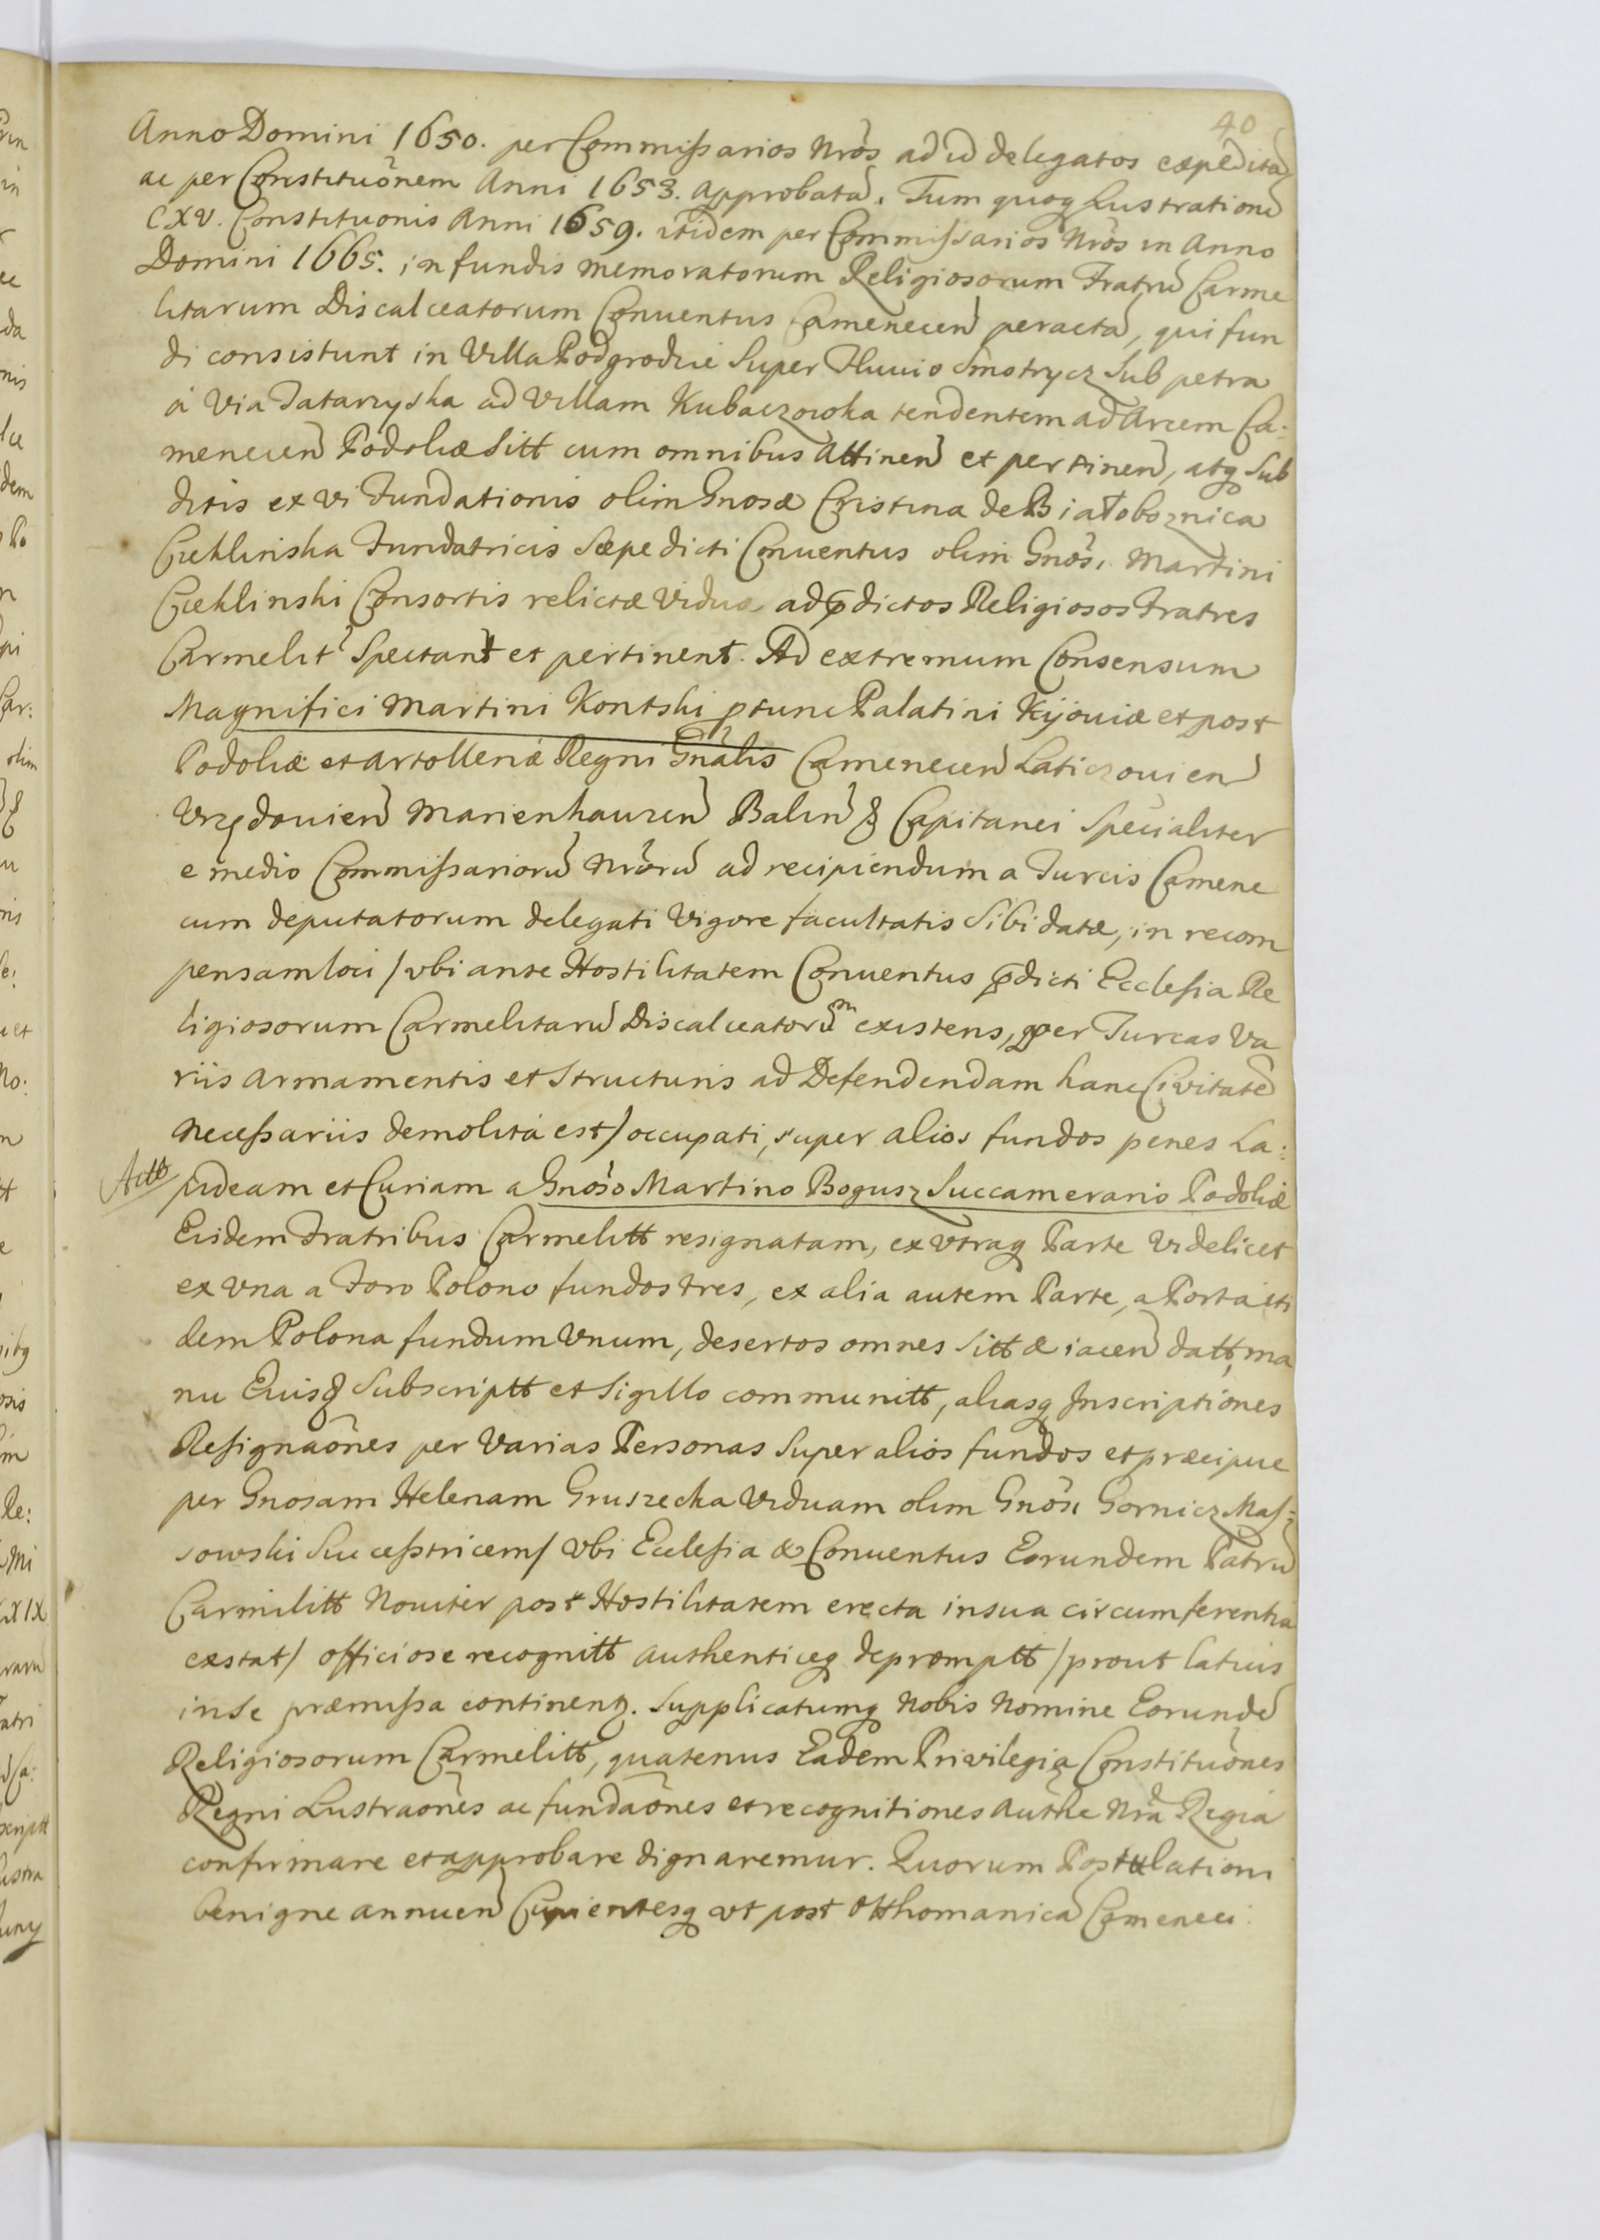 40
Anno Domini 1650. per Commissarios Nr̃os ad id delegatos expeditã
ac per Constituõnem Anni 1653. approbatã. Tum quoq Lustrationẽ
CXV. Constituonis Anni 1659. itidem per Commissarios Nr̃os in Anno
Domini 1665. in fundis memoratorum Religiosorum Fratrũ Carme
litarum Discalceatorum Conuentus Camenecen̄ peractã, qui fun
di consistunt in Villa Podgrodzie super Fluuio Smotrycz sub petra
a via Tatarzyska ad Villam Kubaczowka tendentem ad Arcem Ca:
menecen̄ Podoliæ sitt cum omnibus Attinen̄ et pertinen̄, atq sub
ditis ex vi Fundationis olim Gnosæ Cristina de Białoboznica
Czeklinska Fundatricis sæpe dicti Conuentus olim Gnõsi Martini
Czeklinski Consortis relictæ Viduæ ad p̃dictos Religiosos Fratres
Carmelit̃ spectant et pertinent. Ad extremum Consensum
Magnifici Martini Kontski ptunc Palatini Kijouiæ et post
Podoliæ et Artolleriæ Regni Gñalis Camenecen̄ Laticzouien̄
Vrzędouien̄ Marienhauzen̄ Balin̄ & Capitanei specialiter
e medio Commissariorũ Nr̃orũ ad recipiendum a Turcis Camene
cum deputatorum delegati vigore facultatis sibi datæ, in recom
pensam loci / vbi ante Hostilitatem Conuentus p̃dicti Ecclesia Re
ligiosorum Carmelitarũ Discalceatorũm existens, per Turcas va
riis armamentis et structuris ad Defendendam hanc Civitatẽ
necessariis demolita est / occupati, super alios fundos penes La:
Actt
pideam et Curiam a Gnõso Martino Bogusz Succamerario Podoliæ
Eisdem Fratribus Carmelitt resignatam, ex vtraq Parte videlicet
ex vna a Foro Polono fundos tres, ex alia autem Parte, a Porta iti
dem Polona fundum vnum, desertos omnes sitt & iacen̄ datt, ma
nu Eiusd subscriptt et sigillo communitt, aliasq Inscriptiones
Resignaõnes per varias Personas super alios fundos et præcipue
per Gnosam Helenam Gruszecka viduam olim Gnõsi Gornicz Mas:
sowski Successtricem / vbi Ecclesia & Conuentus Eorundem Patrũ
Carmilitt Nouiter post Hostilitatem erecta in sua circumferentia
exstat / officiose recognitt authenticeq depromptt / prout latius
in se præmissa continent. Supplicatumq Nobis Nomine Eorundẽ
Religiosorum Carmelitt, quatenus Eadem Privilegia Constituõnes
Regni Lustraõnes ac fundaõnes et recognitiones Authe Nr̃a Regia
confirmare et approbare dignaremur. Quorum Postulationi
benigne annuen̄ Cupientesq vt post Otthomanicã Cameneci: